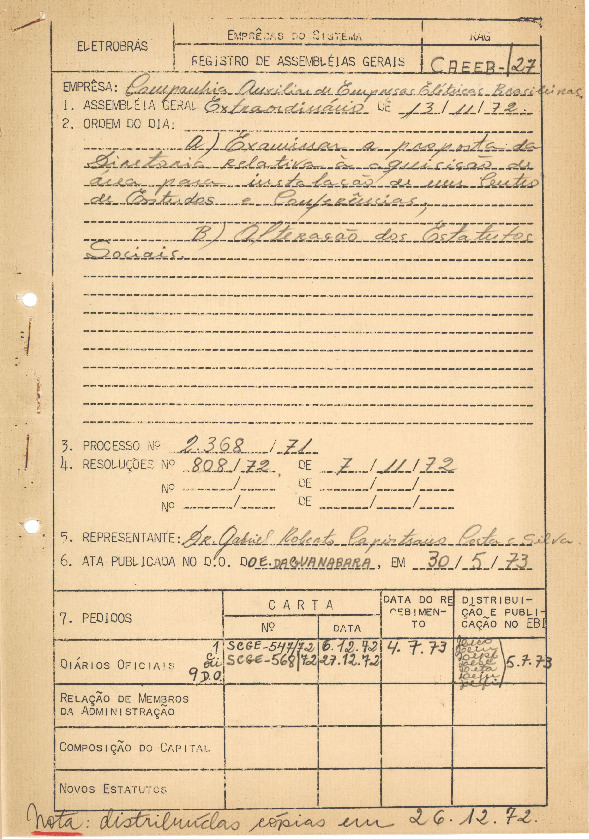 ELETROBRÁS
EMPRÊSAS DO SISTEMA
RAG
REGISTRO DE ASSEMBLÉIAS GERAIS
CAEEB-/27
EMPRÊSA: Companhia Auxiliar de Empresas Elétricas Brasileiras
1. ASSEMBLÉIA GERAL Extraordinária DE 13/11/72.
2. ORDEM DO DIA:
A) Examinar a proposta da
Diretoria relativa à aquisição de
área para instalação de um Centro
de Estudos e Conferências;
B) Alteração dos Estatutos
Sociais.
3. PROCESSO Nº 2.368/71
4. RESOLUÇÕES Nº 808/72 DE 7/11/72
Nº / DE / /
Nº / DE / /
5. REPRESENTANTE: Dr. Gabriel Roberto Costa e Silva.
6. ATA PUBLICADA NO D.O. DOE. DA GUANABARA, EM 30/5/73
7. PEDIDOS
CARTA
Nº
DATA
DATA DO RE
CEBIMEN-
TO
DISTRIBUI-
ÇÃO E PUBLI-
CAÇÃO NO EBI
DIÁRIOS OFICIAIS
1
ou
9 D.O.
SCGE-547/72 6.12.72 4.7.73
SCGE-568/72 27.12.72
5.7.73
RELAÇÃO DE MEMBROS
DA ADMINISTRAÇÃO
COMPOSIÇÃO DO CAPITAL
NOVOS ESTATUTOS
Nota: distribuídas cópias em 26.12.72.